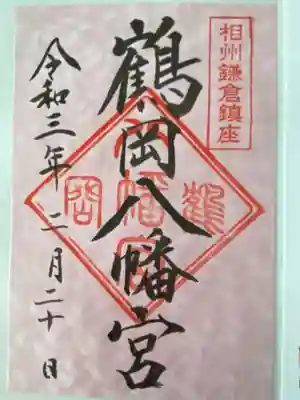 相州鎌倉鎮座
鶴岡八幡宮
令和三年二月二十日